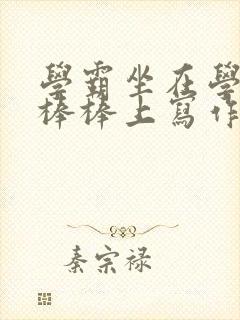 學霸坐在學
棒棒上寫作
秦宗禄